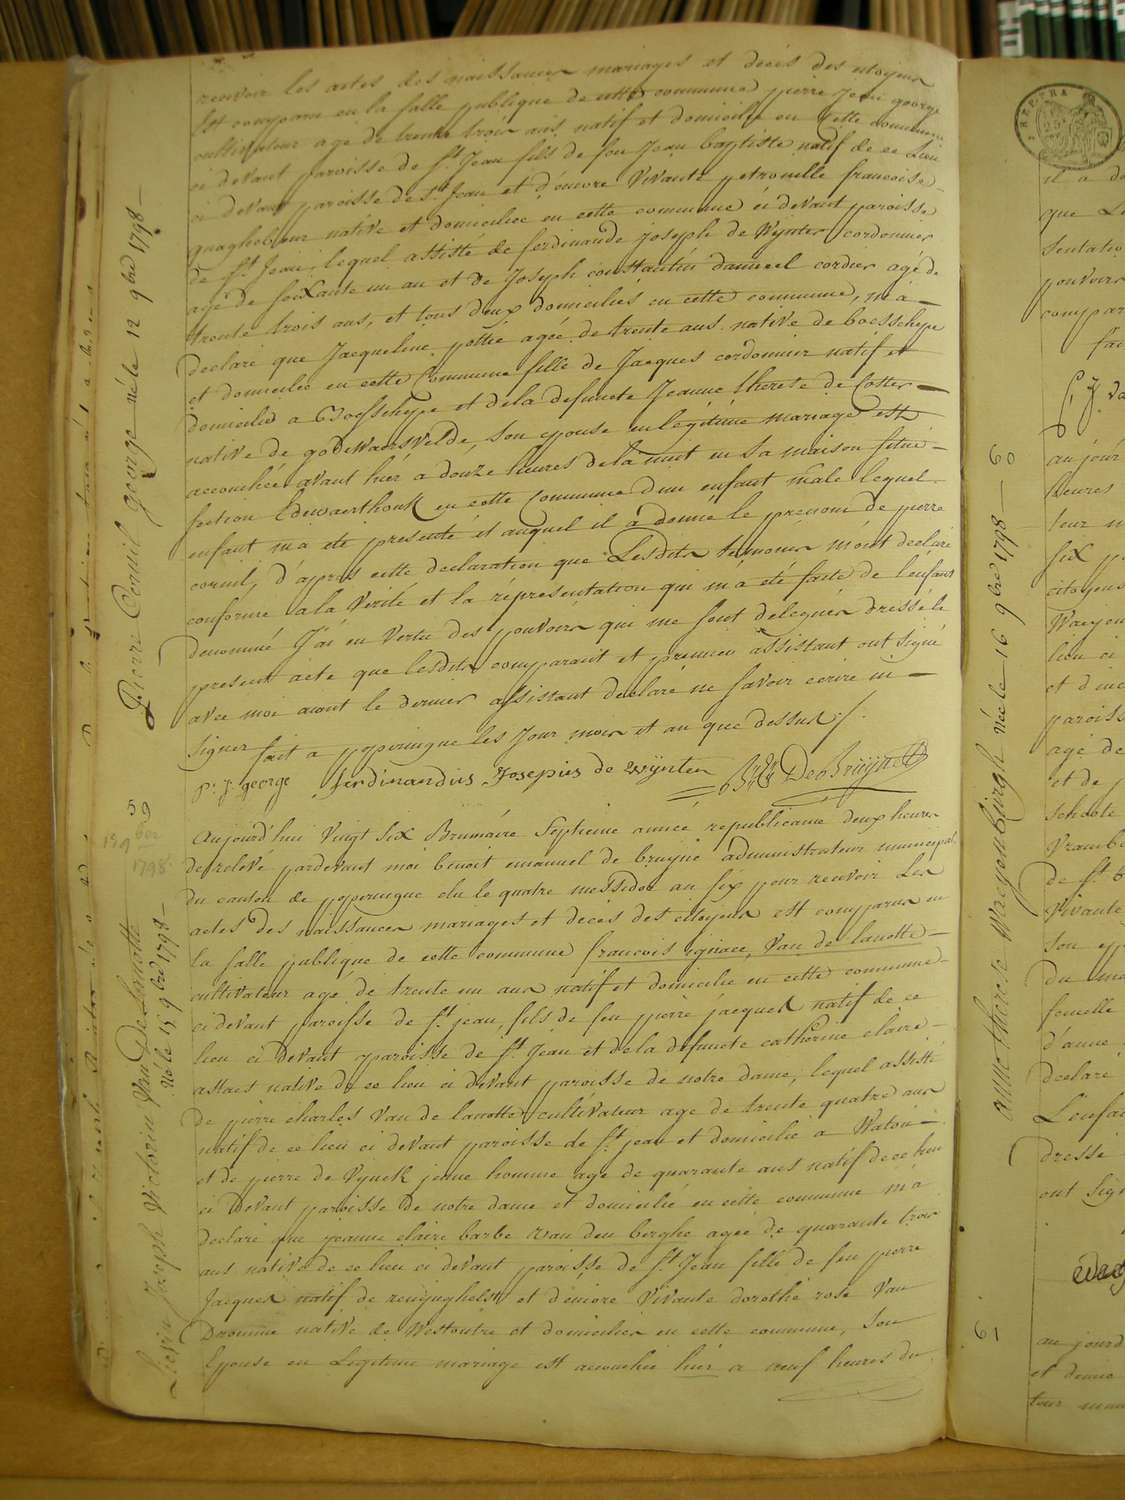 recevoir les actes des naissances mariages et décès des citoyens
Est comparu en la salle publique de cette commune pierre Jean george
cultivateur age de trente trois ans natif et domicilie en cette commune
ci devant paroisse de st Jean fils de feu Jean baptiste natif de ce Lieu
ci devant paroisse de st Jean et d'encore Vivante petronille francoise
native et domiciliee en cette commune ci devant paroisse
de st Jean, lequel assisté de ferdinande Joseph de Wynter cordonnier
agé de soixante un an et de Joseph constantin cordier agé de
trente trois ans, et tous deux domiciliés en cette commune, m'a
Declaré que Jacqueline pottié agée de trente ans native de boesschepe
et domiciliée en cette Commune fille de Jacques cordonnier natif et
domicilié a Boesschepe et de la defuncte Jeanne therese de Coster
native de godewaersvelde, son epouse en légitime mariage est
accouchée avant hier a douze heures de la nuit en sa maison situé
section Edewaerthouk en cette Commune d'un enfant male lequel
enfant m'a eté presenté et auquel il a donné le prénom de pierre
corneil, d'après cette declaration que Lesdits temoins m'ont declaré
conforme a la Verité et la réprésentation qui m'a eté faite de l'enfant
Denommé J'ai en Vertu des pouvoirs qui me sont delegués dressé le
present acte que lesdits comparant et premier assistant ont signé
avec moi aiant le dernier assistant declaré ne savoir ecrire ni
signer fait a poperingue les Jour mois et an que dessus ./.
P: J: george ferdinandus Josepius de wynter B: E: De Bruyne
59
Aujourd'hui Vingt six Brumaire Septieme année republicaine deux heures
de relevé pardevant moi benoit emanuel de bruyne administrateur municipal
du canton de poperingue elu le quatre messidor an six pour recevoir Les
actes des naissances mariages et décès des citoyens est comparu en
la salle publique de cette commune francois ignace Van de lanotte
cultivateur agé de trente un ans natif et domicilie en cette commune
ci devant paroisse de st jean, fils de feu pierre jacques natif de ce
lieu ci devant paroisse de st Jean et de la defuncte catherine claire
native de ce lieu ci devant paroisse de notre dame, lequel assisté
de pierre charles Van de lanotte cultivateur age de trente quatre ans
natif de ce lieu ci devant paroisse de st jean et domicilié a Watou
et de pierre de Vynck jeune homme agé de quarante ans natif de ce lieu
ci devant paroisse de notre dame et domicilié en cette commune m'a
declaré que jeanne claire barbe van den berghe agée de quarante trois
ans native de ce lieu ci devant paroisse de st Jean fille de feu pierre
Jacques natif de reninghelst et d'encore Vivante dorothé rose Van
native de Westoutre et domiciliés en cette commune, Son
Epouse en Legitime mariage est accouchée hier a neuf heures du
Pierre Corneil george né le 12 9bre 1798
15 9bre
1798
Lievin Joseph Victorin Van De Lanotte
Né le 15 9bre 1798
il a de
que Le
pouvoirs
compar
fai
60
anne therese Waeyenburgh née le 16 9bre 1798
au jour
heures
six p
citoyens
lieu ci
paroiss
agé de
et de p
de st
Vivante
son ep
femelle
declaré
L'enfa
dressé
ont sign
61
au jourd
et demie